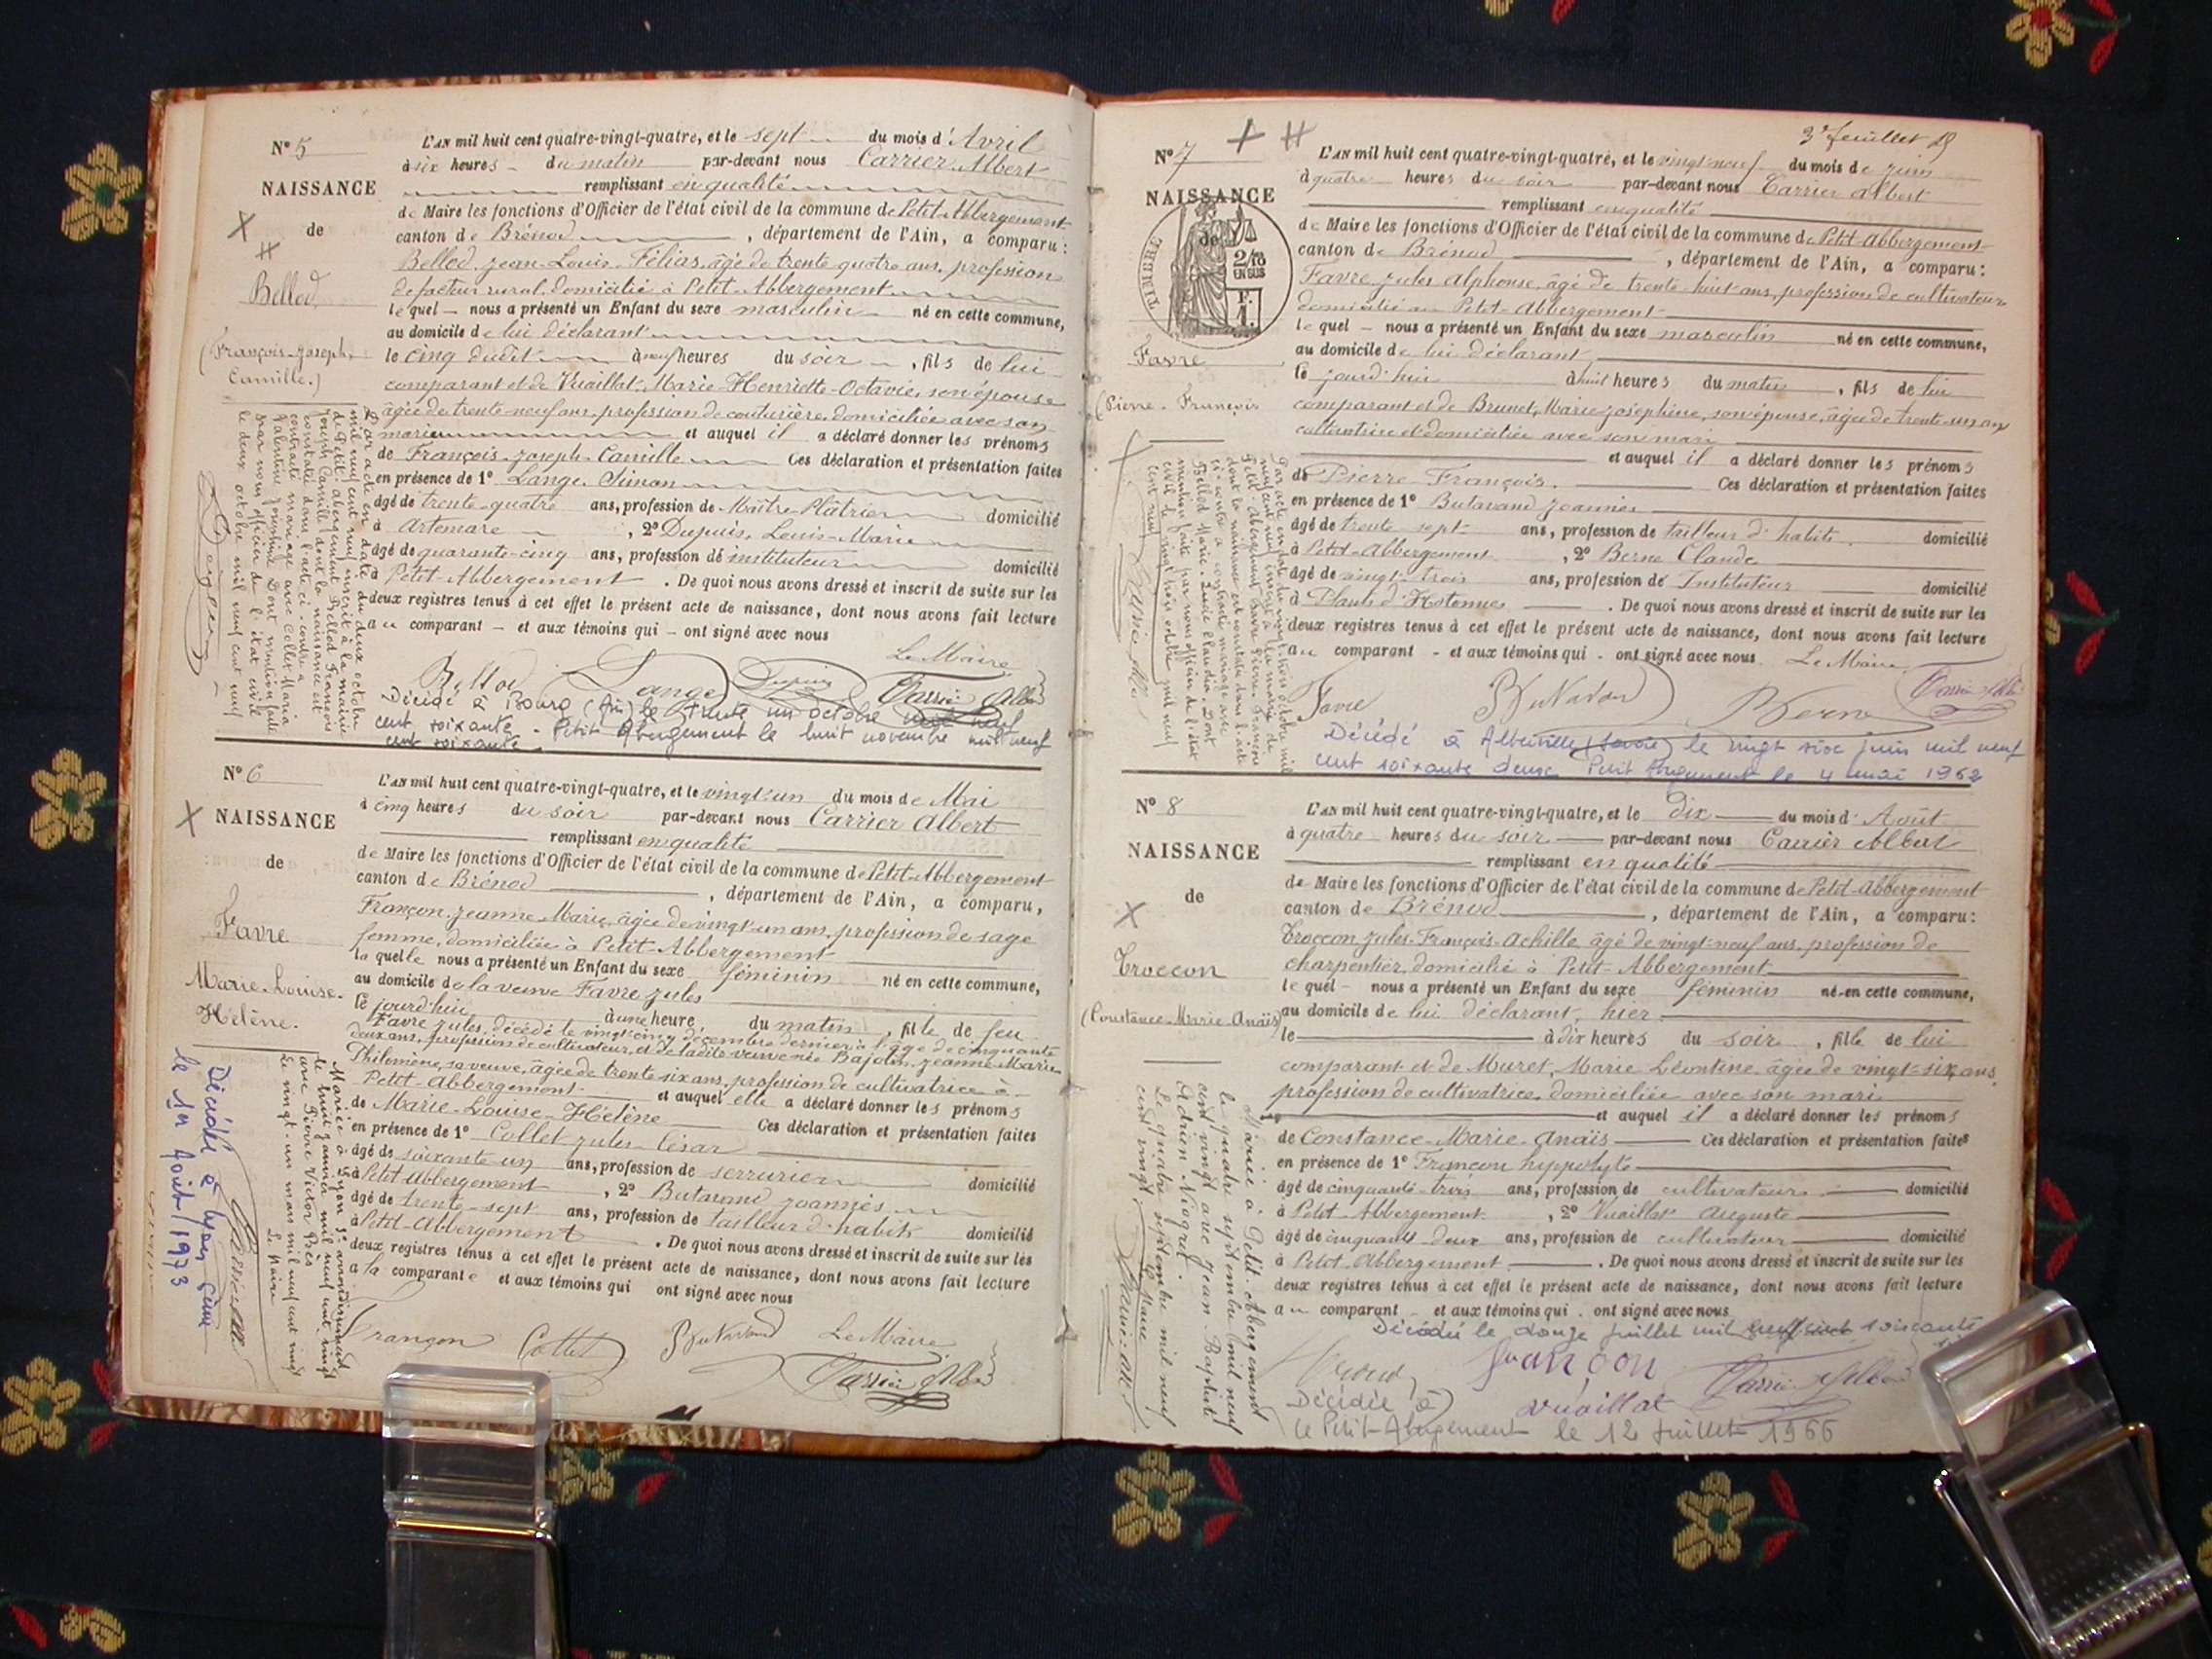 N° 5
NAISSANCE
de
Bellod
(François-Joseph-
Camille.)
L'AN mil huit cent quatre-vingt-quatre, et le sept du mois d'Avril
à six heures du matin par-devant nous Carrier Albert
remplissant en qualité
de Maire les fonctions d'Officier de l'état civil de la commune de Petit-Abbergement
canton de Brénod, département de l'Ain, a comparu :
Bellod Jean-Louis-Félias, âgé de trente quatre ans, profession
de facteur rural, domicilié à Petit-Abbergement
lequel nous a présenté un Enfant du sexe masculin né en cette commune,
au domicile de lui déclarant
le cinq dudit à neuf heures du soir, fils de lui
comparant et de Vuaillat, Marie-Henriette-Octavie, son épouse
âgée de trente-neuf ans, profession de couturière, domiciliée avec son
mari et auquel il a déclaré donner les prénoms
de François-Joseph-Camille Ces déclaration et présentation faites
en présence de 1° Lange Simon
âgé de trente-quatre ans, profession de Maître-Plâtrier domicilié
à Artemare, 2° Dupuis, Louis-Marie
âgé de quarante-cinq ans, profession de instituteur domicilié
à Petit-Abbergement. De quoi nous avons dressé et inscrit de suite sur les
deux registres tenus à cet effet le présent acte de naissance, dont nous avons fait lecture
au comparant et aux témoins qui ont signé avec nous
Le Maire
Bellod Lange Dupuis Carrier Albert
Décédé à Bourg (Ain) le trente un octobre mil neuf
cent soixante - Petit Abergement le huit novembre mil neuf
cent soixante
Par acte en date du deux octobre
mil neuf cent neuf inscrit à la mairie
de Petit Abergement Bellod François
Joseph Camille dont la naissance est
constatée dans l'acte ci-contre a
contracté mariage avec Collet Maria
Valentine Joséphine Dont mention faite
par nous officier de l'état civil
le deux octobre mil neuf cent neuf
N° 6
NAISSANCE
de
Favre
Marie-Louise-
Hélène.
L'AN mil huit cent quatre-vingt-quatre, et le vingt-un du mois de Mai
à cinq heures du soir par-devant nous Carrier Albert
remplissant en qualité
de Maire les fonctions d'Officier de l'état civil de la commune de Petit-Abbergement
canton de Brénod, département de l'Ain, a comparu,
Françon, Jeanne-Marie, âgée de vingt-un ans, profession de sage
femme, domiciliée à Petit-Abbergement
laquelle nous a présenté un Enfant du sexe féminin né en cette commune,
au domicile de la veuve Favre Jules
le jourd'hui à une heure du matin, fille de feu
Favre Jules, décédé le vingt-cinq décembre dernier à l'âge de cinquante
deux ans, profession de cultivateur, et de ladite veuve née Bajolin, Jeanne-Marie
Philomène, sa veuve, âgée de trente six ans, profession de cultivatrice à
Petit-Abbergement et auquel elle a déclaré donner les prénoms
de Marie-Louise-Hélène Ces déclaration et présentation faites
en présence de 1° Collet Jules-César
âgé de soixante-un ans, profession de serrurier domicilié
à Petit-Abbergement, 2° Butavand Joannès
âgé de trente-sept ans, profession de tailleur d'habits domicilié
à Petit-Abbergement. De quoi nous avons dressé et inscrit de suite sur les
deux registres tenus à cet effet le présent acte de naissance, dont nous avons fait lecture
à la comparante et aux témoins qui ont signé avec nous
Françon Collet Butavand Le Maire
Carrier Albert
Mariée à Lyon 3e arrondissement
le huit janvier mil neuf cent vingt
avec Pierre Victor Près
Le vingt-un mars mil neuf cent vingt
Le Maire
Décédée à Lyon
le 1er Août 1973
3e feuillet
N° 7
NAISSANCE
de
TIMBRE
2/10
EN SUS
F.
1.
Favre
(Pierre-François
L'AN mil huit cent quatre-vingt-quatre, et le vingt-neuf du mois de juin
à quatre heures du soir par-devant nous Carrier Albert
remplissant en qualité
de Maire les fonctions d'Officier de l'état civil de la commune de Petit-Abbergement
canton de Brénod, département de l'Ain, a comparu :
Favre Jules Alphonse, âgé de trente-huit ans, profession de cultivateur
domicilié au Petit-Abbergement
lequel nous a présenté un Enfant du sexe masculin né en cette commune,
au domicile de lui déclarant
le jourd'hui à huit heures du matin, fils de lui
comparant et de Brunet, Marie Joséphine, son épouse, âgée de trente-un ans
cultivatrice et domiciliée avec son mari
et auquel il a déclaré donner les prénoms
de Pierre François. Ces déclaration et présentation faites
en présence de 1° Butavand Joannès
âgé de trente-sept ans, profession de tailleur d'habits domicilié
à Petit-Abbergement, 2° Berne Claude
âgé de vingt-trois ans, profession de Instituteur domicilié
à Plaul d'Hotonnes. De quoi nous avons dressé et inscrit de suite sur les
deux registres tenus à cet effet le présent acte de naissance, dont nous avons fait lecture
au comparant et aux témoins qui ont signé avec nous Le Maire
Favre Butavand Berne Carrier Albert
Décédé à Albertville (Savoie) le vingt six juin mil neuf
cent soixante deux Petit Abergement le 4 mai 1962
N° 8
NAISSANCE
de
Troccon
(Constance-Marie-Anaïs)
L'AN mil huit cent quatre-vingt-quatre, et le dix du mois d'Août
à quatre heures du soir par-devant nous Carrier Albert
remplissant en qualité
de Maire les fonctions d'Officier de l'état civil de la commune de Petit-Abbergement
canton de Brénod, département de l'Ain, a comparu :
Troccon Jules-François-Achille âgé de vingt-neuf ans, profession de
charpentier, domicilié à Petit-Abbergement
lequel nous a présenté un Enfant du sexe féminin né en cette commune,
au domicile de lui déclarant, hier
le à dix heures du soir, fille de lui
comparant et de Muret, Marie Léontine, âgée de vingt-six ans,
profession de cultivatrice, domiciliée avec son mari
et auquel il a déclaré donner les prénoms
de Constance-Marie-Anaïs Ces déclaration et présentation faites
en présence de 1° Françon hyppolyte
âgé de cinquante-trois ans, profession de cultivateur domicilié
à Petit-Abbergement, 2° Vuaillat Auguste
âgé de cinquante deux ans, profession de cultivateur domicilié
à Petit-Abbergement. De quoi nous avons dressé et inscrit de suite sur les
deux registres tenus à cet effet le présent acte de naissance, dont nous avons fait lecture
au comparant et aux témoins qui ont signé avec nous
Décédée le douze juillet mil neuf cent soixante
françon Carrier Albert
vuaillat
Décédée à
Le Petit-Abergement le 12 Juillet 1966
Mariée à Petit Abergement
le quatre septembre mil neuf
cent vingt avec Jean-Baptiste
Adrien Niogret.
Le quatre septembre mil neuf
cent vingt
Le Maire